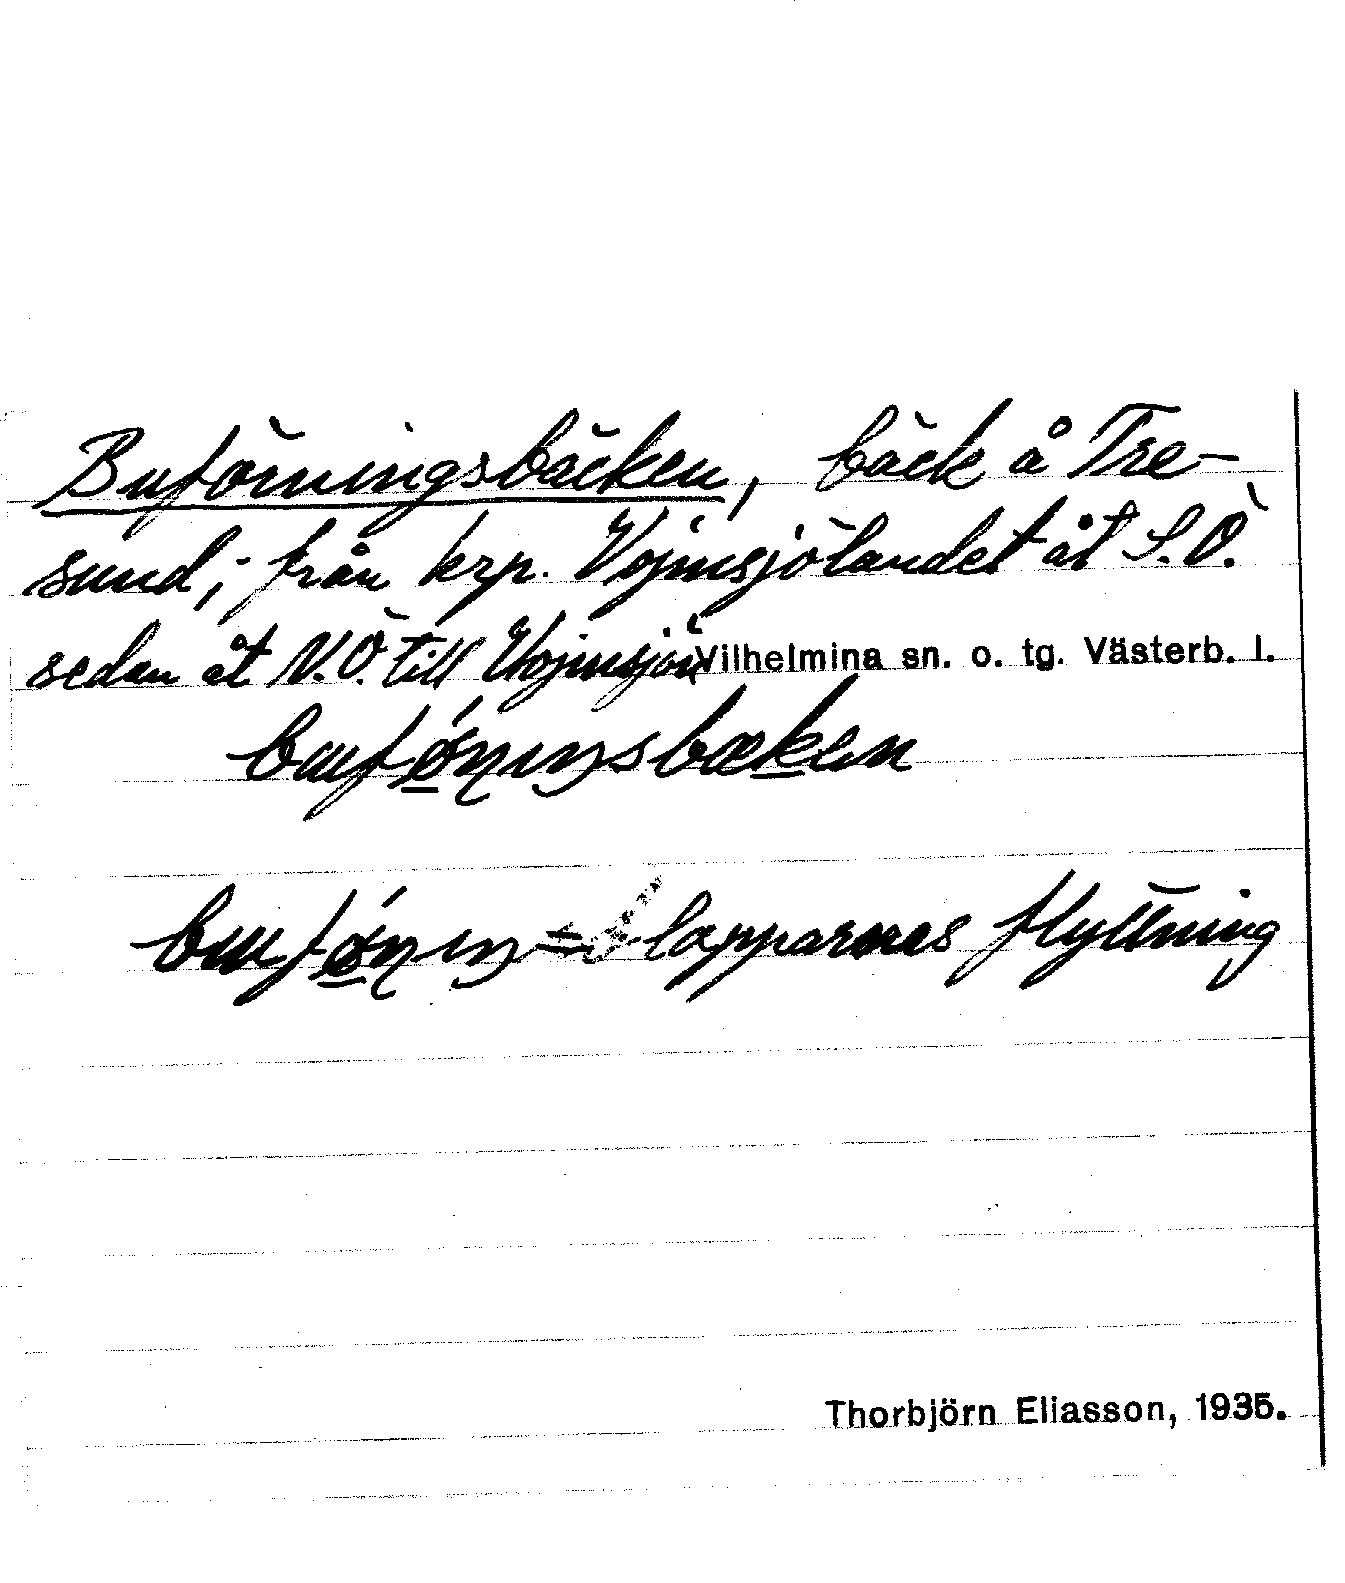 Buförningsbäcken, bäck å Tre-
sund; från krp. Vojmsjölandet åt S.Ö.
sedan åt N.Ö. till Vojmsjön Vilhelmina sn. o. tg. Västerb. l.
lapparnas flyttning
Thorbjörn Eliasson, 1935.